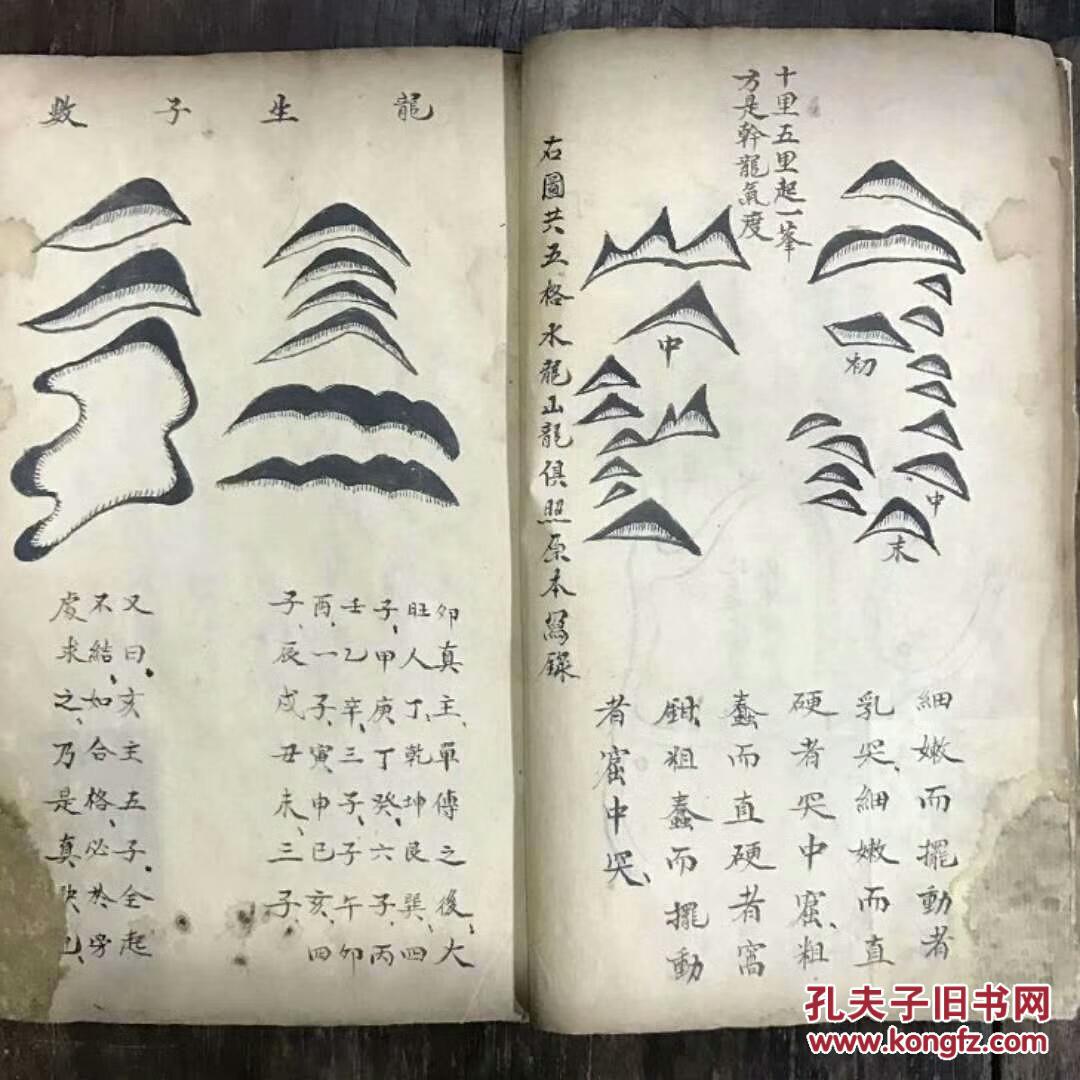 十里五里起一峯
方是幹龍氣度
初
中
末
中
細嫩而擺動者
乳突、細嫩而直
硬者突中窟、粗
蠢而直硬者窩
鉗、粗蠢而擺動
者窟中突、
右圖共五格水龍山龍俱照原本寫錄
龍生子數
卯真主、單傳之後、大
旺人丁、乾坤艮巽、四
子、甲庚丁癸、六子、丙
壬乙辛、三子、子午卯
酉、一子、寅申巳亥、四
子、辰戌丑未、三子、
又曰、亥主五子、全起
不結、如合格、必於旁
處求之、乃是真訣也、
孔夫子旧书网
www.kongfz.com